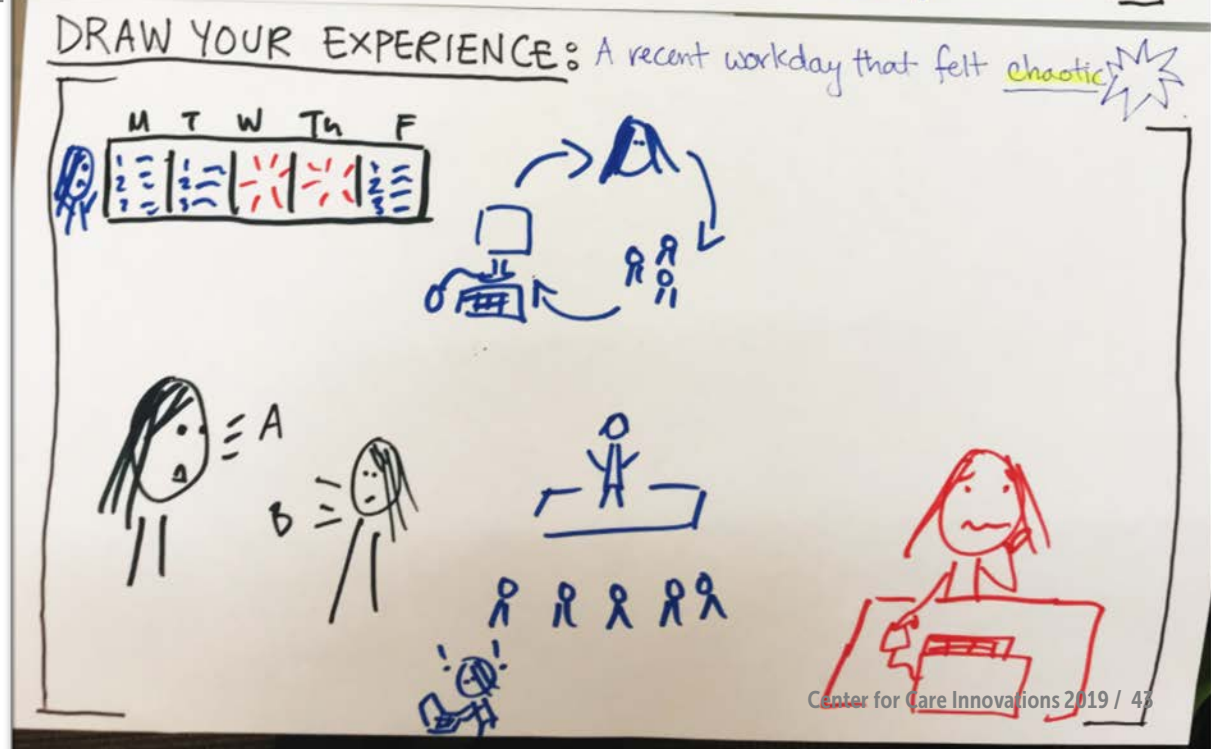 DRAW YOUR EXPERIENCE: A recent workday that felt chaotic
M T W Th F
1 1 1
2 2 2
3 3 3
A
B
! !
Center for Care Innovations 2019 / 43